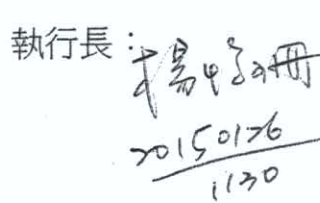 執行長：楊
20150126
1130